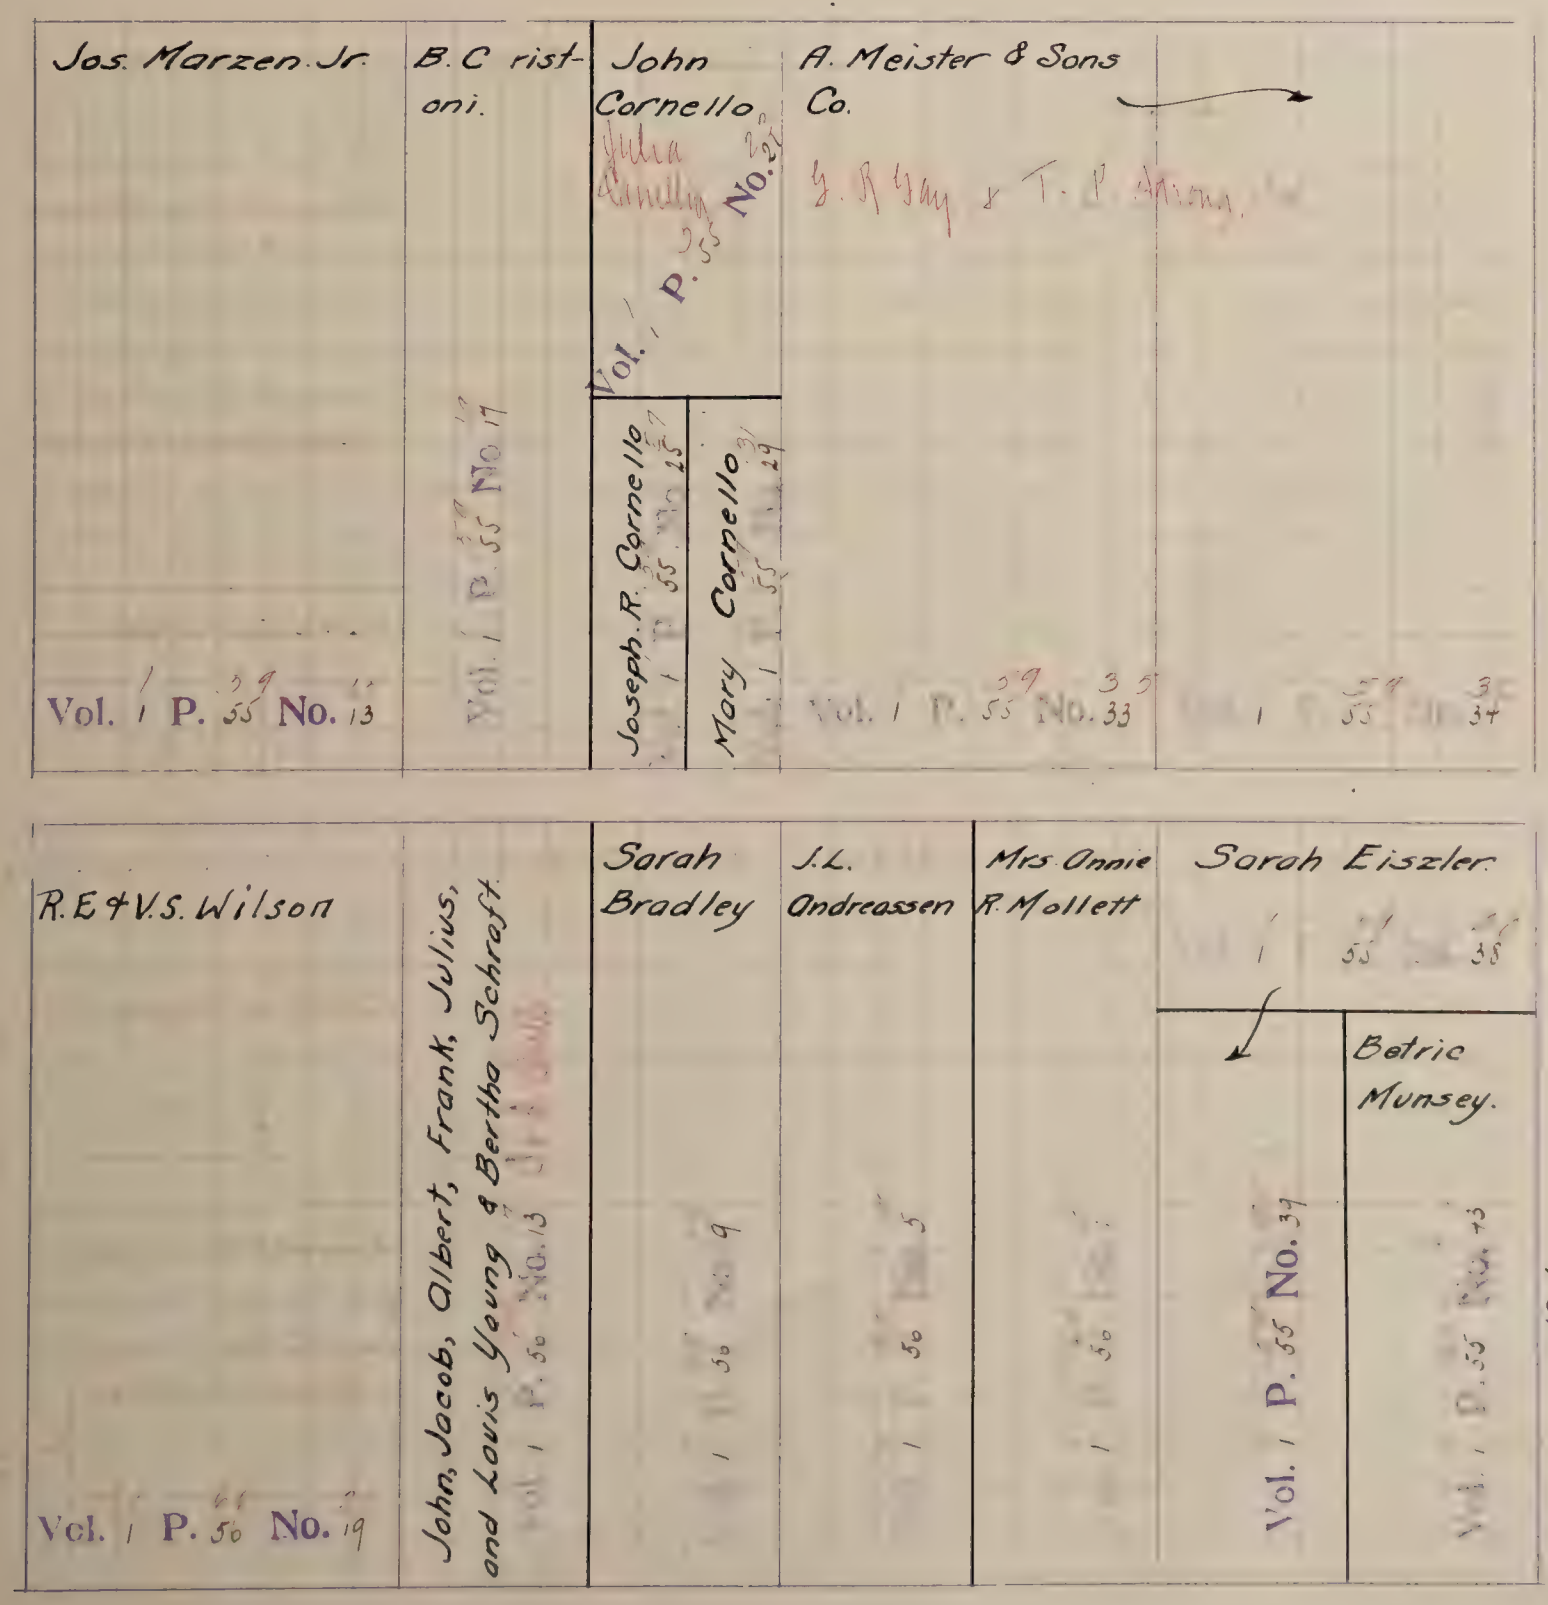 Jos. Marzen Jr.
Vol. 1 P. 55 No. 13
B. C rist-
oni.
Vol. 1 P. 55 No 17
John
Cornello
Julia
Vol. 1 P. 55 No. 21
Joseph. R. Cornello
1 P 55 No 25
Mary Cornello
1 55 29
A. Meister & Sons
Co.
G. R Gay & T. P.
Vol. 1 P. 55 No. 33
1 55 34
R. E & V. S. Wilson
Vol. 1 P. 56 No. 19
John, Jacob, Albert, Frank, Julius,
and Louis Young & Bertha Schraft.
Vol. 1 P. 56 No. 13
Sarah
Bradley
1 56 No 9
J. L.
Andreassen
1 56 5
Mrs Annie
R. Mollett
1 56
Sarah Eiszler.
1 55 38
Vol. 1 P. 55 No. 39
Betric
Munsey.
Vol. 1 P. 55 No. 43